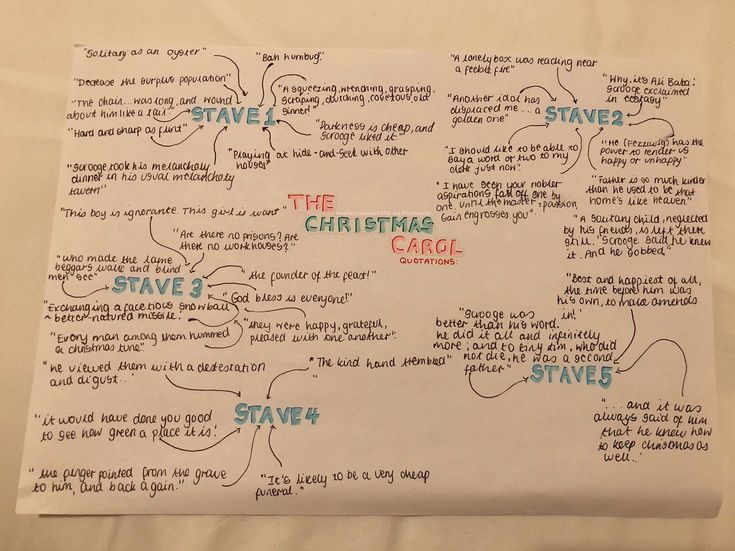 "Solitary as an oyster"
"Bah humbug."
"Decrease the surplus population"
"A squeezing, wrenching, grasping,
scraping, clutching, covetous old
sinner!"
"The chain... was long, and wound
about him like a tail."
STAVE 1
"Hard and sharp as flint"
"Darkness is cheap, and
scrooge liked it."
"Playing at hide-and-seek with other
houses"
"Scrooge took his melancholy
dinner in his usual melancholy
tavern"
"A lonely box was reading near
a feeble fire"
"Why, it's Ali Baba!
Scrooge exclaimed
in ecstasy"
"Another idol has
displaced me... a
golden one"
STAVE 2
"He (Fezziwig) has the
power to render us
happy or unhappy"
"I should like to be able to
say a word or two to my
clerk just now".
"Father is so much kinder
than he used to be that
home's like heaven."
"I have seen your nobler
aspirations fall off one by
one, until the master-passion,
Gain engrosses you".
"A solitary child, neglected
by his friends, is left there
still." Scrooge said he knew
it. And he sobbed"
THE
CHRISTMAS
CAROL
QUOTATIONS:
"This boy is ignorante. This girl is want"
"Are there no prisons? Are
there no workhouses?"
"who made the lame
beggars walk and blind
men see"
"the founder of the feast!"
STAVE 3
"God bless is everyone!"
"Exchanging a facetious snowball
~ better-natured missile."
"they were happy, grateful,
pleased with one another".
"Every man among them hummed
a christmas tune."
"Best and happiest of all,
the time before him was
his own, to make amends
in!
"Scrooge was
better than his word.
he did it all and infinitely
more; and to tiny tim, who did
not die, he was a second
father"
STAVE 5
"...and it was
always said of him
that he knew how
to keep christmas as
well..'
"he viewed them with a detestation
and digust..."
"The kind hand trembled"
STAVE 4
"it would have done you good
to see how green a place it is!
"the finger pointed from the grave
to him, and back again."
"It's likely to be a very cheap
funeral."